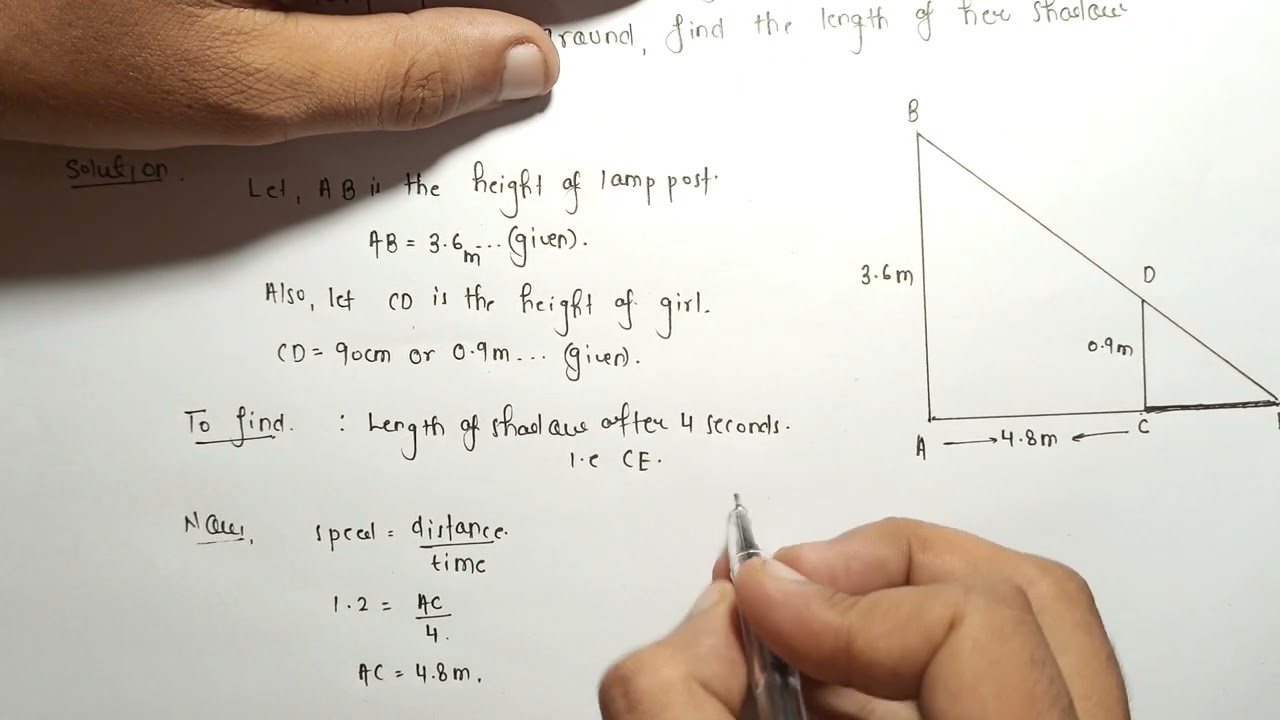 ground, find the length of her shadow
Solution.
Let, AB is the height of lamp post.
AB = 3.6m ... (given).
Also, let CD is the height of girl.
CD = 90cm or 0.9m ... (given).
To find. : Length of shadow after 4 seconds.
i.e CE.
Now, speed = distance.
time
1.2 = AC
4.
AC = 4.8m.
B
D
3.6m
0.9m
A → 4.8m ← C